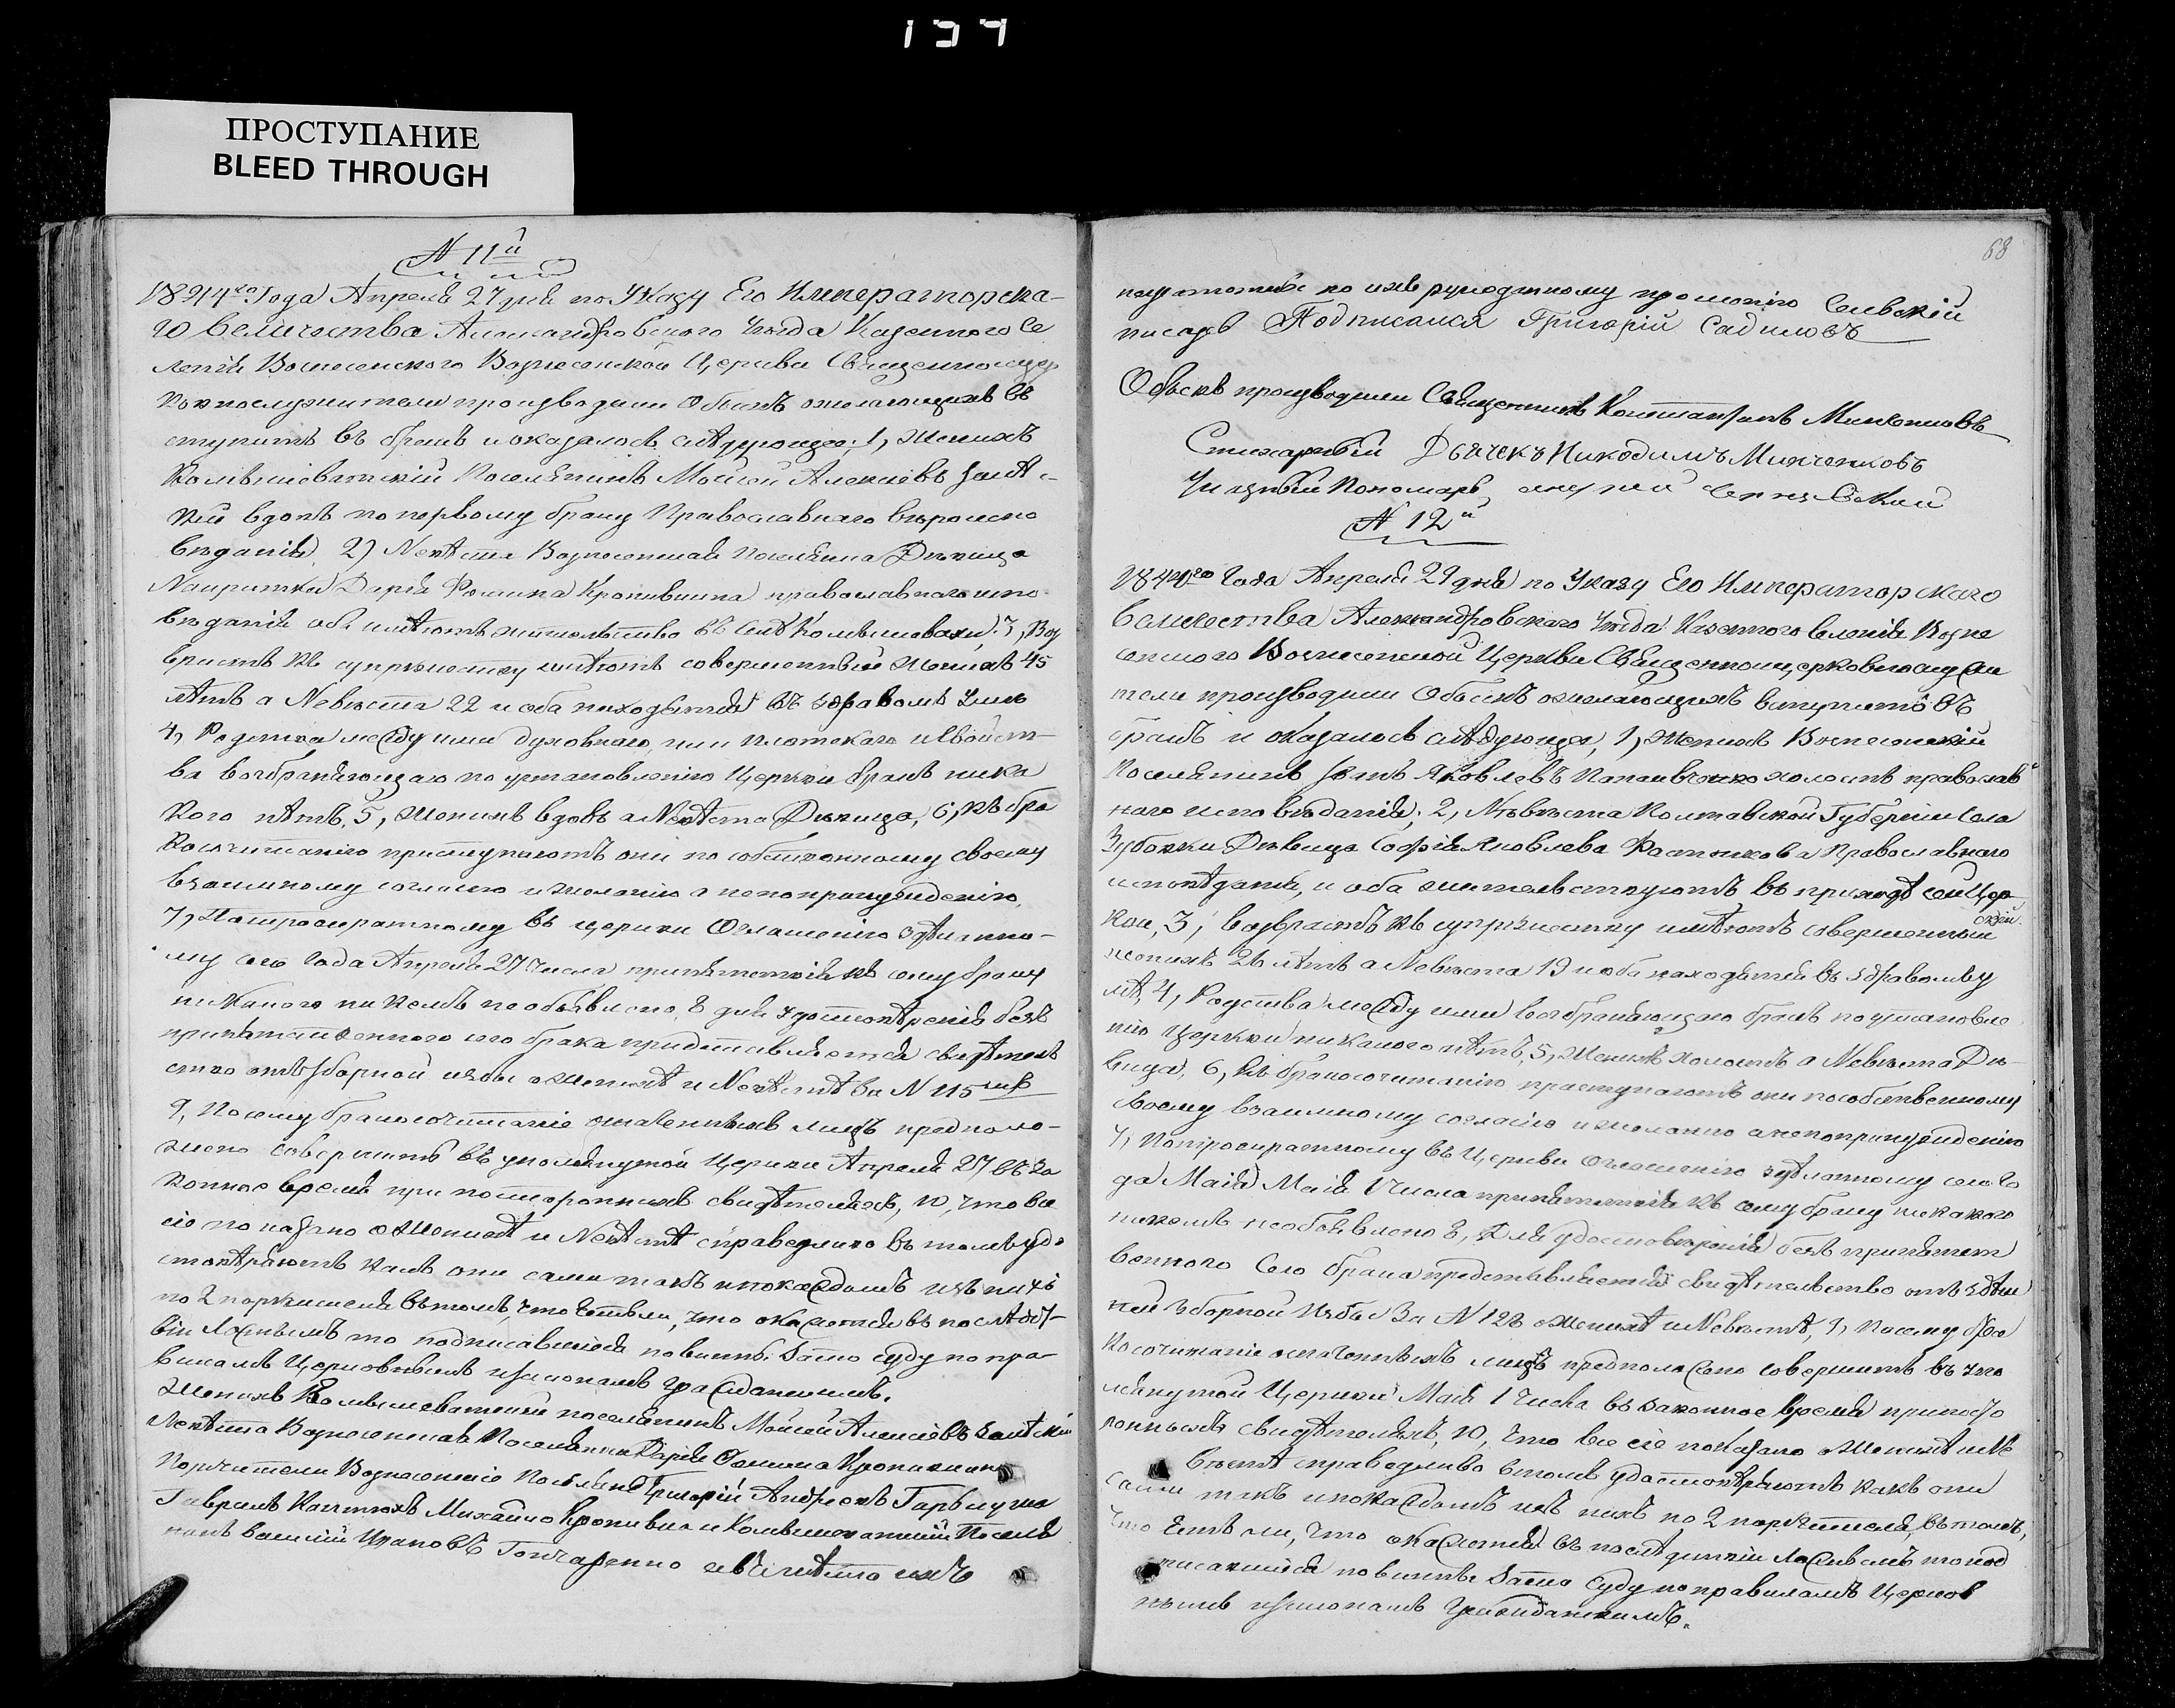 134
ПРОСТУПАНИЕ
BLEED THROUGH
N 11й
1844го Года Апреля 27 дня по Указу Его Императорска-
го величества Александровского Уезда Казенного Се
ления Вознесенского Вознесенской Церкви Священноцер
ковнослужители производили Обыскъ о желающихъ в
ступить въ бракъ и оказалось следующее; 1, Женихъ
поселянинъ Моисей Алексеевъ
вдовъ по первому браку Православнаго вероиспо
веданія, 2) Невѣста Вознесенская поселянка Дѣвица
Дарія Фомина Кропивина православнаго испо
вѣданія оба имѣютъ жительство въ селѣ 3, Воз
врастъ къ супружеству имѣютъ совершенный Женихъ 45
лѣтъ а Невѣста 22 и оба находятся въ здравомъ Умѣ
4, Родства между ими духовнаго, или плотскаго и свойст-
ва возбраняющаго по установленію Церкви бракъ ника
кого нѣтъ, 5, Женихъ вдовъ а Невѣста Дѣвица, 6, Къ бра
косочитанію приступаютъ они по собственному своему
взаимному согласію и желанію а не по принужденію,
7, По троекратному въ церкви Оглашенію здѣланно-
му сего Года Апреля 27 числа препятствія къ сему браку
никакого ни кемъ не объявлено, 8 для удостовѣренія безъ
препятственного сего брака представляется свидѣтель
ство отъ Зборной избы о Женихѣ и Невѣстѣ за N 115
9, Посему бракосочитаніе означенныхъ лицъ предполо-
жено совершить въ упомянутой Церкви Апреля 27 въ за
конное время при постороннихъ свидѣтеляхъ, 10, что все
сіе показано о Женихѣ и Невѣстѣ справедливо въ томъ удо
стовѣряютъ какъ они сами такъ и по каждомъ изъ нихъ
по 2 поручителя въ томъ, что Естьли, что окажется въ послѣдст-
віи Ложнымъ то подписавшіеся повинны Затѣмъ суду по пра-
виламъ Церковнымъ и законамъ гражданскимъ.
Женихъ поселянинъ Моисей Алексеевъ
Невѣста Вознесенская Поселянка Дарія Фомина Кропивина
Поручители Вознесенскіе Поселяне Григорій Андреевъ
Гавріилъ Михайло Кропивка и Поселя
нинъ Василій Ивановъ Гончаренко а вмѣсто ихъ
68
неграмотныхъ по ихъ рукоданному прошенію Сельскій
писарь Подписался Григорій Садиловъ
Обыскъ производили Священникъ Константинъ Минченковъ
Стихарный Дьячекъ Никодимъ Минченковъ
Указный Пономарь
N 12й
1844го Года Апреля 29 дня по Указу Его Императорского
величества Александровского Уезда Казенного селенія Возне
сенского Вознесенской Церкви Священноцерковнослужи
тели производили Обыскъ о желающихъ вступить въ
бракъ и оказалось слѣдующее, 1, Женихъ Вознесенскій
Поселянинъ Яковлевъ холостъ православ
наго исповѣданія; 2, Невѣста Полтавской Губерніи села
Зубовки Дѣвица Софія Яковлева Православнаго
исповѣданія, и оба жительствуютъ въ приходѣ сей Цер
кви, 3, возврастъ къ супружеству имѣютъ совершенный
женихъ 26 лѣтъ а Невѣста 19 и оба находятся въ здравомъ у
мѣ, 4, Родства между ими возбраняющаго бракъ по установле
нію Церкви никакого нѣтъ, 5, Женихъ холостъ а Невѣста Дѣ-
вица, 6, Къ бракосочитанію приступаютъ они по собственному
своему взаимному согласію и желанію а не по принужденію
7, По троекратному въ Церкви Оглашенію здѣланному сего Го
да Маія Маія 1 Числа препятствія къ сему браку никакого
ни кемъ не объявлено 8, Для удостовѣренія безъ препятст
веннаго Сего брака представляется свидѣтельство отъ здѣш
ней Зборной Избы За N 128 о женихѣ и Невѣстѣ, 9, Посему бра
косочитаніе означенныхъ лицъ предположено совершить въ упо
мянутой Церкви Маія 1 числа въ законное время при посто
роннихъ свидѣтеляхъ, 10, что все сіе показано о Женихѣ и Не
вѣстѣ справедливо въ томъ удостовѣряютъ какъ они
сами такъ и по каждомъ изъ нихъ по 2 поручителя, въ томъ,
что Естьли, что окажется въ послѣдствіи Ложнымъ то под
писавшіеся повинны Затѣмъ Суду по правиламъ Церков
нымъ и законамъ Гражданскимъ.